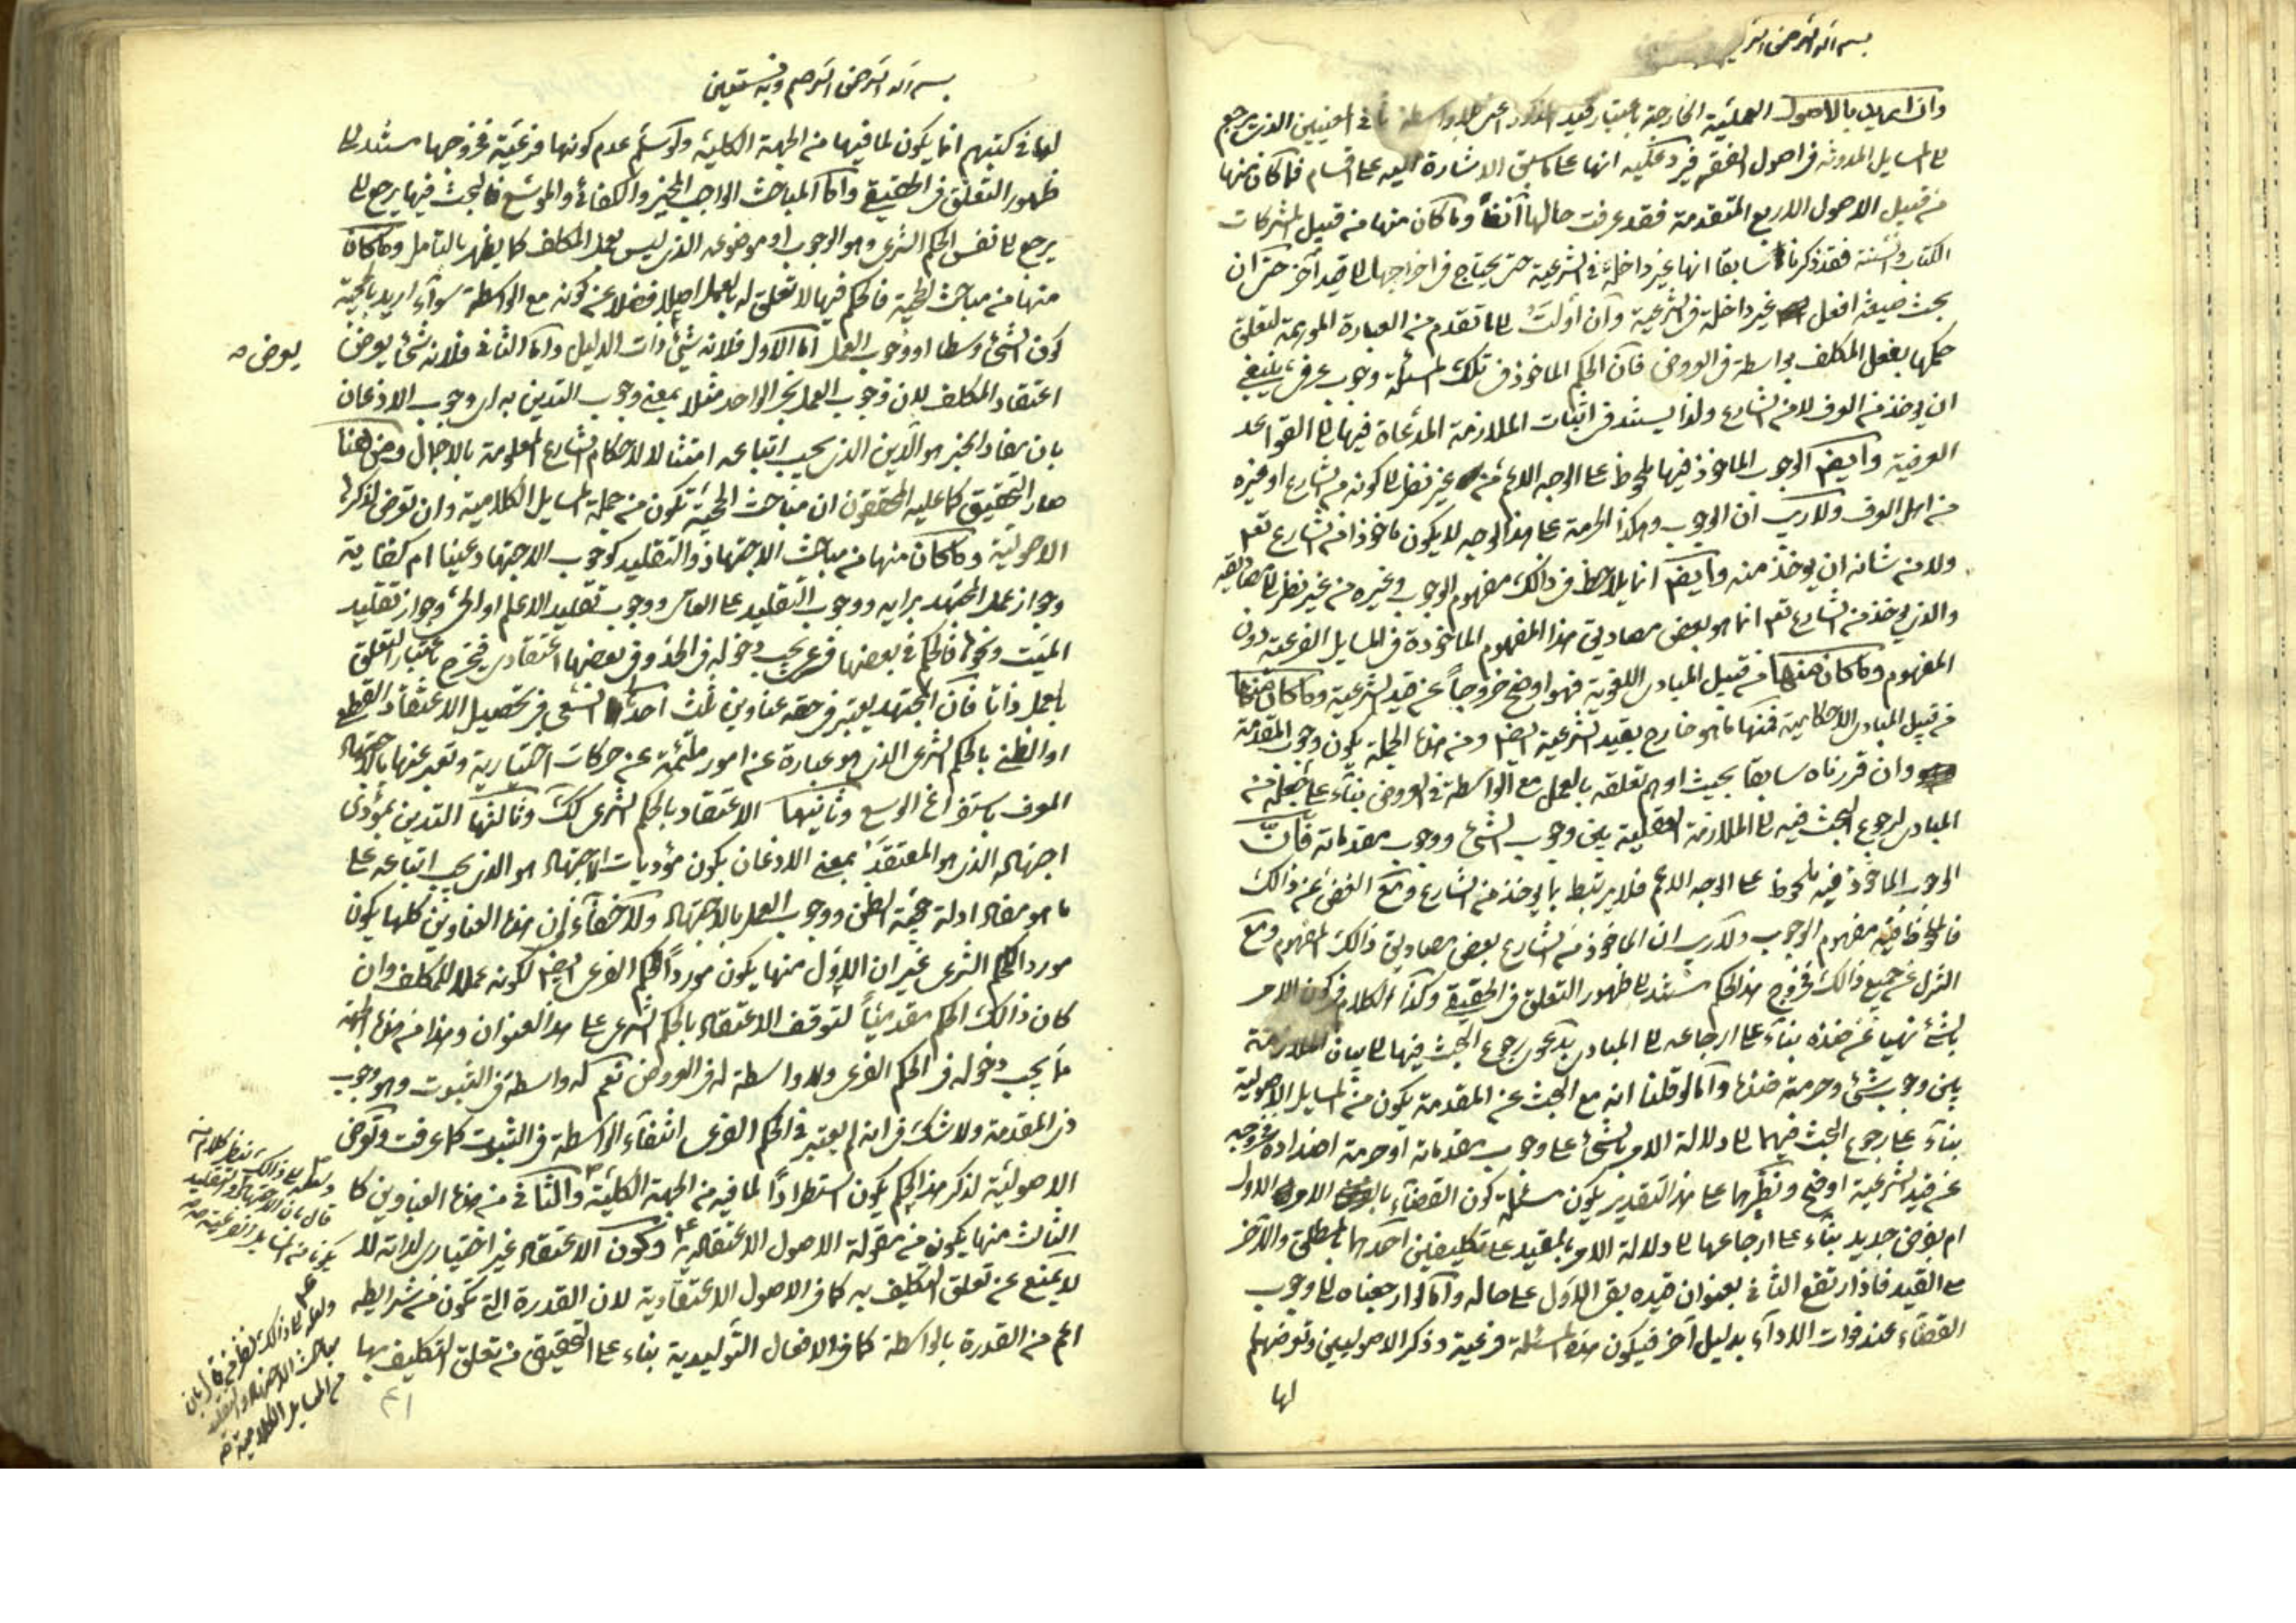 بسم الله الرحمن الرحيم
وان اريد بالاصول العملية الخارجة باعتبار قيد المذكور اعني بلا واسطة في المعنيين الذين يرجع
لا المسايل المدونة في اصول الفقه فيرد عليه انها على ما سبق الاشارة اليه على اقسام فما كان منها
من قبيل الاصول الاربع المتقدمة فقد عرفت حالها آنفا وما كان منها من قبيل المشتركات
الكتاب والسنة فقد ذكرنا سابقا انها غير داخلة في الشرعية حتى يحتاج في اخراجها لا قيد آخر حتى ان
بحث صيغة افعل غير داخلة في الشرعية وان أولت لا ما تقدم من العبارة الموهمة لتعلق
حكمها بفعل المكلف بواسطة في العروض فان الحكم الماخوذ في تلك المسئلة وجوب عرفي ينبغي
ان يوخذ من العرف لا من الشارع ولذا يستند في اثبات الملازمة المدعاة فيها لا القواعد
العرفية وايضا الوجوب الماخوذ فيها ملحوظ على الوجه الاعم من غير نظر لا كونه من الشارع او غيره
من اهل العرف ولا ريب ان الوجوب وهكذا الحرمة على هذا الوجه لا يكون ماخوذا من الشارع تعم
ولا من شانه ان يوخذ منه وايضا انما يلاحظ في ذلك مفهوم الوجوب وغيره من غير نظر لا مصاديقه
والذي يوخذ من الشارع تعم انما هو بعض مصاديق هذا المفهوم الماخوذة في المسايل الفرعية دون
المفهوم وما كان منها من قبيل المبادى اللغوية فهو اوضح خروجاً عن قيد الشرعية وما كان منها
من قبيل المبادى الاحكامية فمنها ما هو خارج بقيد الشرعية ايضا ومن هذه الجملة يكون وجوب المقدمة
وان قررناه سابقا بحيث اوهم تعلقه بالعمل مع الواسطة في العروض بناء على جعله من
المبادى لرجوع البحث فيه لا الملازمة العقلية بين وجوب الشئ ووجوب مقدماته فان
الوجوب الماخوذ فيه ملحوظ على الوجه الاعم فلا يرتبط بما يوخذ من الشارع ومع الغض عن ذلك
فالملحوظ فيه مفهوم الوجوب ولا ريب ان الماخوذ من الشارع بعض مصاديق ذلك المفهوم ومع
التنزل عن جميع ذلك فخروج هذا الحكم مستند لا ظهور التعلق في الحقيقي وكذا الكلام في كون الامر
بالشئ نهيا عن ضده بناء على ارجاعه لا المبادى بدعوى رجوع البحث فيها لا بيان الملازمة
بين وجوب شئ وحرمة ضده واما لو قلنا انه مع البحث عن المقدمة يكون من المسايل الاصولية
بناء على رجوع البحث فيهما لا دلالة الامر بالشئ على وجوب مقدماته او حرمة اضداده فخروجه
عن قيد الشرعية اوضح ونظيرهما على هذا التقدير يكون مسئلة كون القضاء بالامر الاول
ام بفرض جديد بناء على ارجاعها لا دلالة الامر بالمقيد على تكليفين احدهما بالمطلق والآخر
لا القيد فاذا ارتفع الثاني بعنوان قيده بقى الاول على حاله واما لو ارجعناه لا وجوب
القضاء عند فوات الاداء بدليل آخر فيكون هذه المسئلة فرعية وذكر الاصوليين وتعرضهم
لها
بسم الله الرحمن الرحيم وبه نستعين
لها في كتبهم انما يكون لما فيها من الجهة الكلية ولو سلم عدم كونها فرعية فخروجها مستند لا
ظهور التعلق في الحقيقي واما المباحث الواجب المخير والكفائى والموسع فالبحث فيها يرجع لا
يرجع لا نفس الحكم الشرعى وهو الوجوب او موضوعه الذى ليس بعمل المكلف كما يظهر بالتامل وما كان
منها من مباحث الحجية فالحكم فيها لا تعلق له بالعمل اصلا فضلا عن كونه مع الواسطة سواء اريد بالحجية
كون الشئ وسطا او وجوب العمل اما الاول فلانه شئ ذات الدليل واما الثانى فلانه شئ يعرض
يعرض صه
اعتقاد المكلف لان وجوب العمل بخبر الواحد مثلا بمعنى وجوب التدين به اى وجوب الاذعان
بان مفاد الخبر هو الدين الذى يجب اتباعه امتثالا لاحكام الشارع المعلومة بالاجمال ومن هنا
صار التحقيق كما عليه المحققون ان مباحث الحجية تكون من جملة المسايل الكلامية وان تعرض لذكرها
الاصولية وما كان منها من مباحث الاجتهاد والتقليد كوجوب الاجتهاد عينا ام كفاية
وجواز عمل المجتهد برايه ووجوب التقليد على العامى ووجوب تقليد الاعلم او الحى وجواز تقليد
الميت ونحوها فالحكم في بعضها فرعى يجب دخوله في الحد وفى بعضها اعتقادى فيخرج باعتبار التعلق
بالعمل ذاتا فان المجتهد يعتبر في حقه عناوين ثلث احدها السعى في تحصيل الاعتقاد القطعى
او الظنى بالحكم الشرعى الذى هو عبارة عن امور ملتئمة عن حركات اختيارية وتعبر عنها بالاجتهاد
المعرف باستفراغ الوسع وثانيها الاعتقاد بالحكم الشرعى كك وثالثها التدين بمؤدى
اجتهاده الذى هو المعتقد بمعنى الاذعان بكون مؤديات الاجتهاد هو الذى يجب اتباعه على
ما هو مفاد ادلة حجية الظن ووجوب العمل بالاجتهاد ولا خفاء ان هذه العناوين كلها يكون
مورد الحكم الشرعى غير ان الاول منها يكون مورداً للحكم الفرعى ايضا لكونه عملا للمكلف وان
كان ذلك الحكم مقدمياً لتوقف الاعتقاد بالحكم الشرعى على هذا العنوان وهذا من هذه الجهة
ما يجب دخوله في الحكم الفرعى ولا واسطة له في العروض نعم له واسطة في الثبوت وهو وجوب
ذى المقدمة ولا شك في انه لم يعتبر في الحكم الفرعى انتفاء الواسطة في الثبوت كما عرفت وتعرض
الاصولية لذكر هذا الحكم يكون استطراداً لما فيه من الجهة الكلية والثانى من هذه العناوين كا
الثالث منها يكون من مقولة الاصول الاعتقادية وكون الاعتقاد غير اختيارى لذاته لا
لا يمنع عن تعلق التكليف به كما في الاصول الاعتقادية لان القدرة التي تكون من شرايطه
اعم من القدرة بالواسطة كما في الافعال التوليدية بناء على التحقيق من تعلق التكليف بها
ولعله لا ذلك ينظر كلام من
قال بان الاجتهاد والتقليد
يكونا من المسايل الفرعية منه
ولعله لا ذلك نظر من قال بان
مباحث الاجتهاد والتقليد
من المسايل الكلامية منه